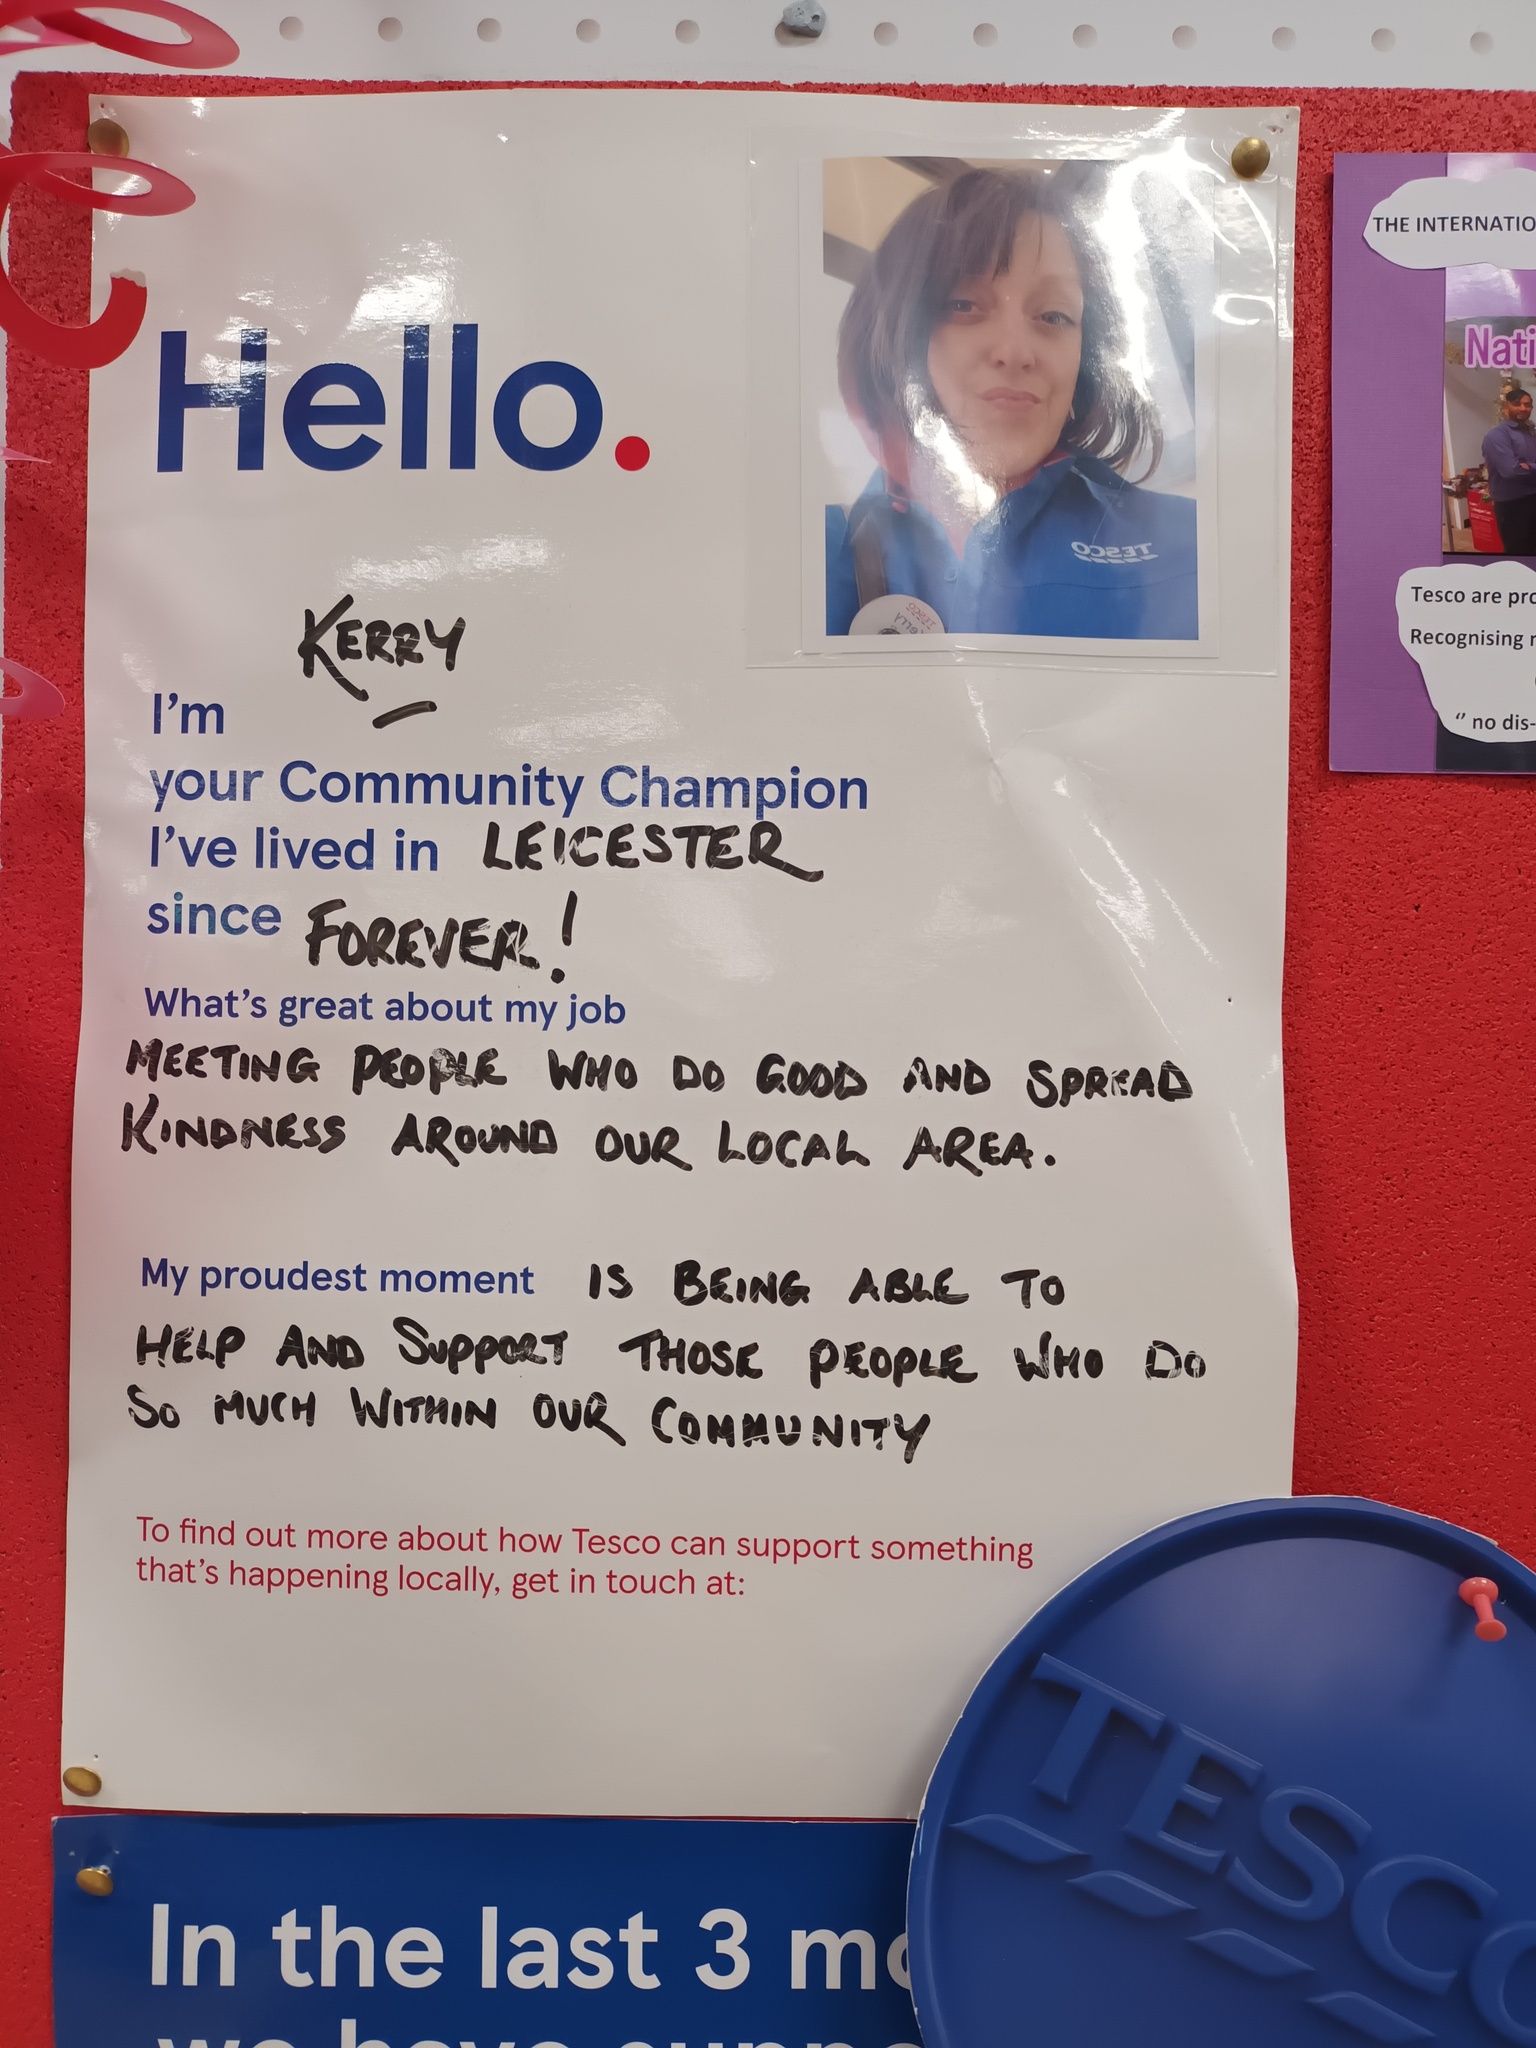 Hello.
KERRY
I'm
your Community Champion
I've lived in LEICESTER
since FOREVER!
What's great about my job
MEETING PEOPLE WHO DO GOOD AND SPREAD
KINDNESS AROUND OUR LOCAL AREA.
My proudest moment IS BEING ABLE TO
HELP AND SUPPORT THOSE PEOPLE WHO DO
SO MUCH WITHIN OUR COMMUNITY
To find out more about how Tesco can support something
that's happening locally, get in touch at:
TESCO
TESCO
In the last 3 mo
we have suppo
TESCO
THE INTERNATIO
Nati
Tesco are pro
Recognising r
" no dis-